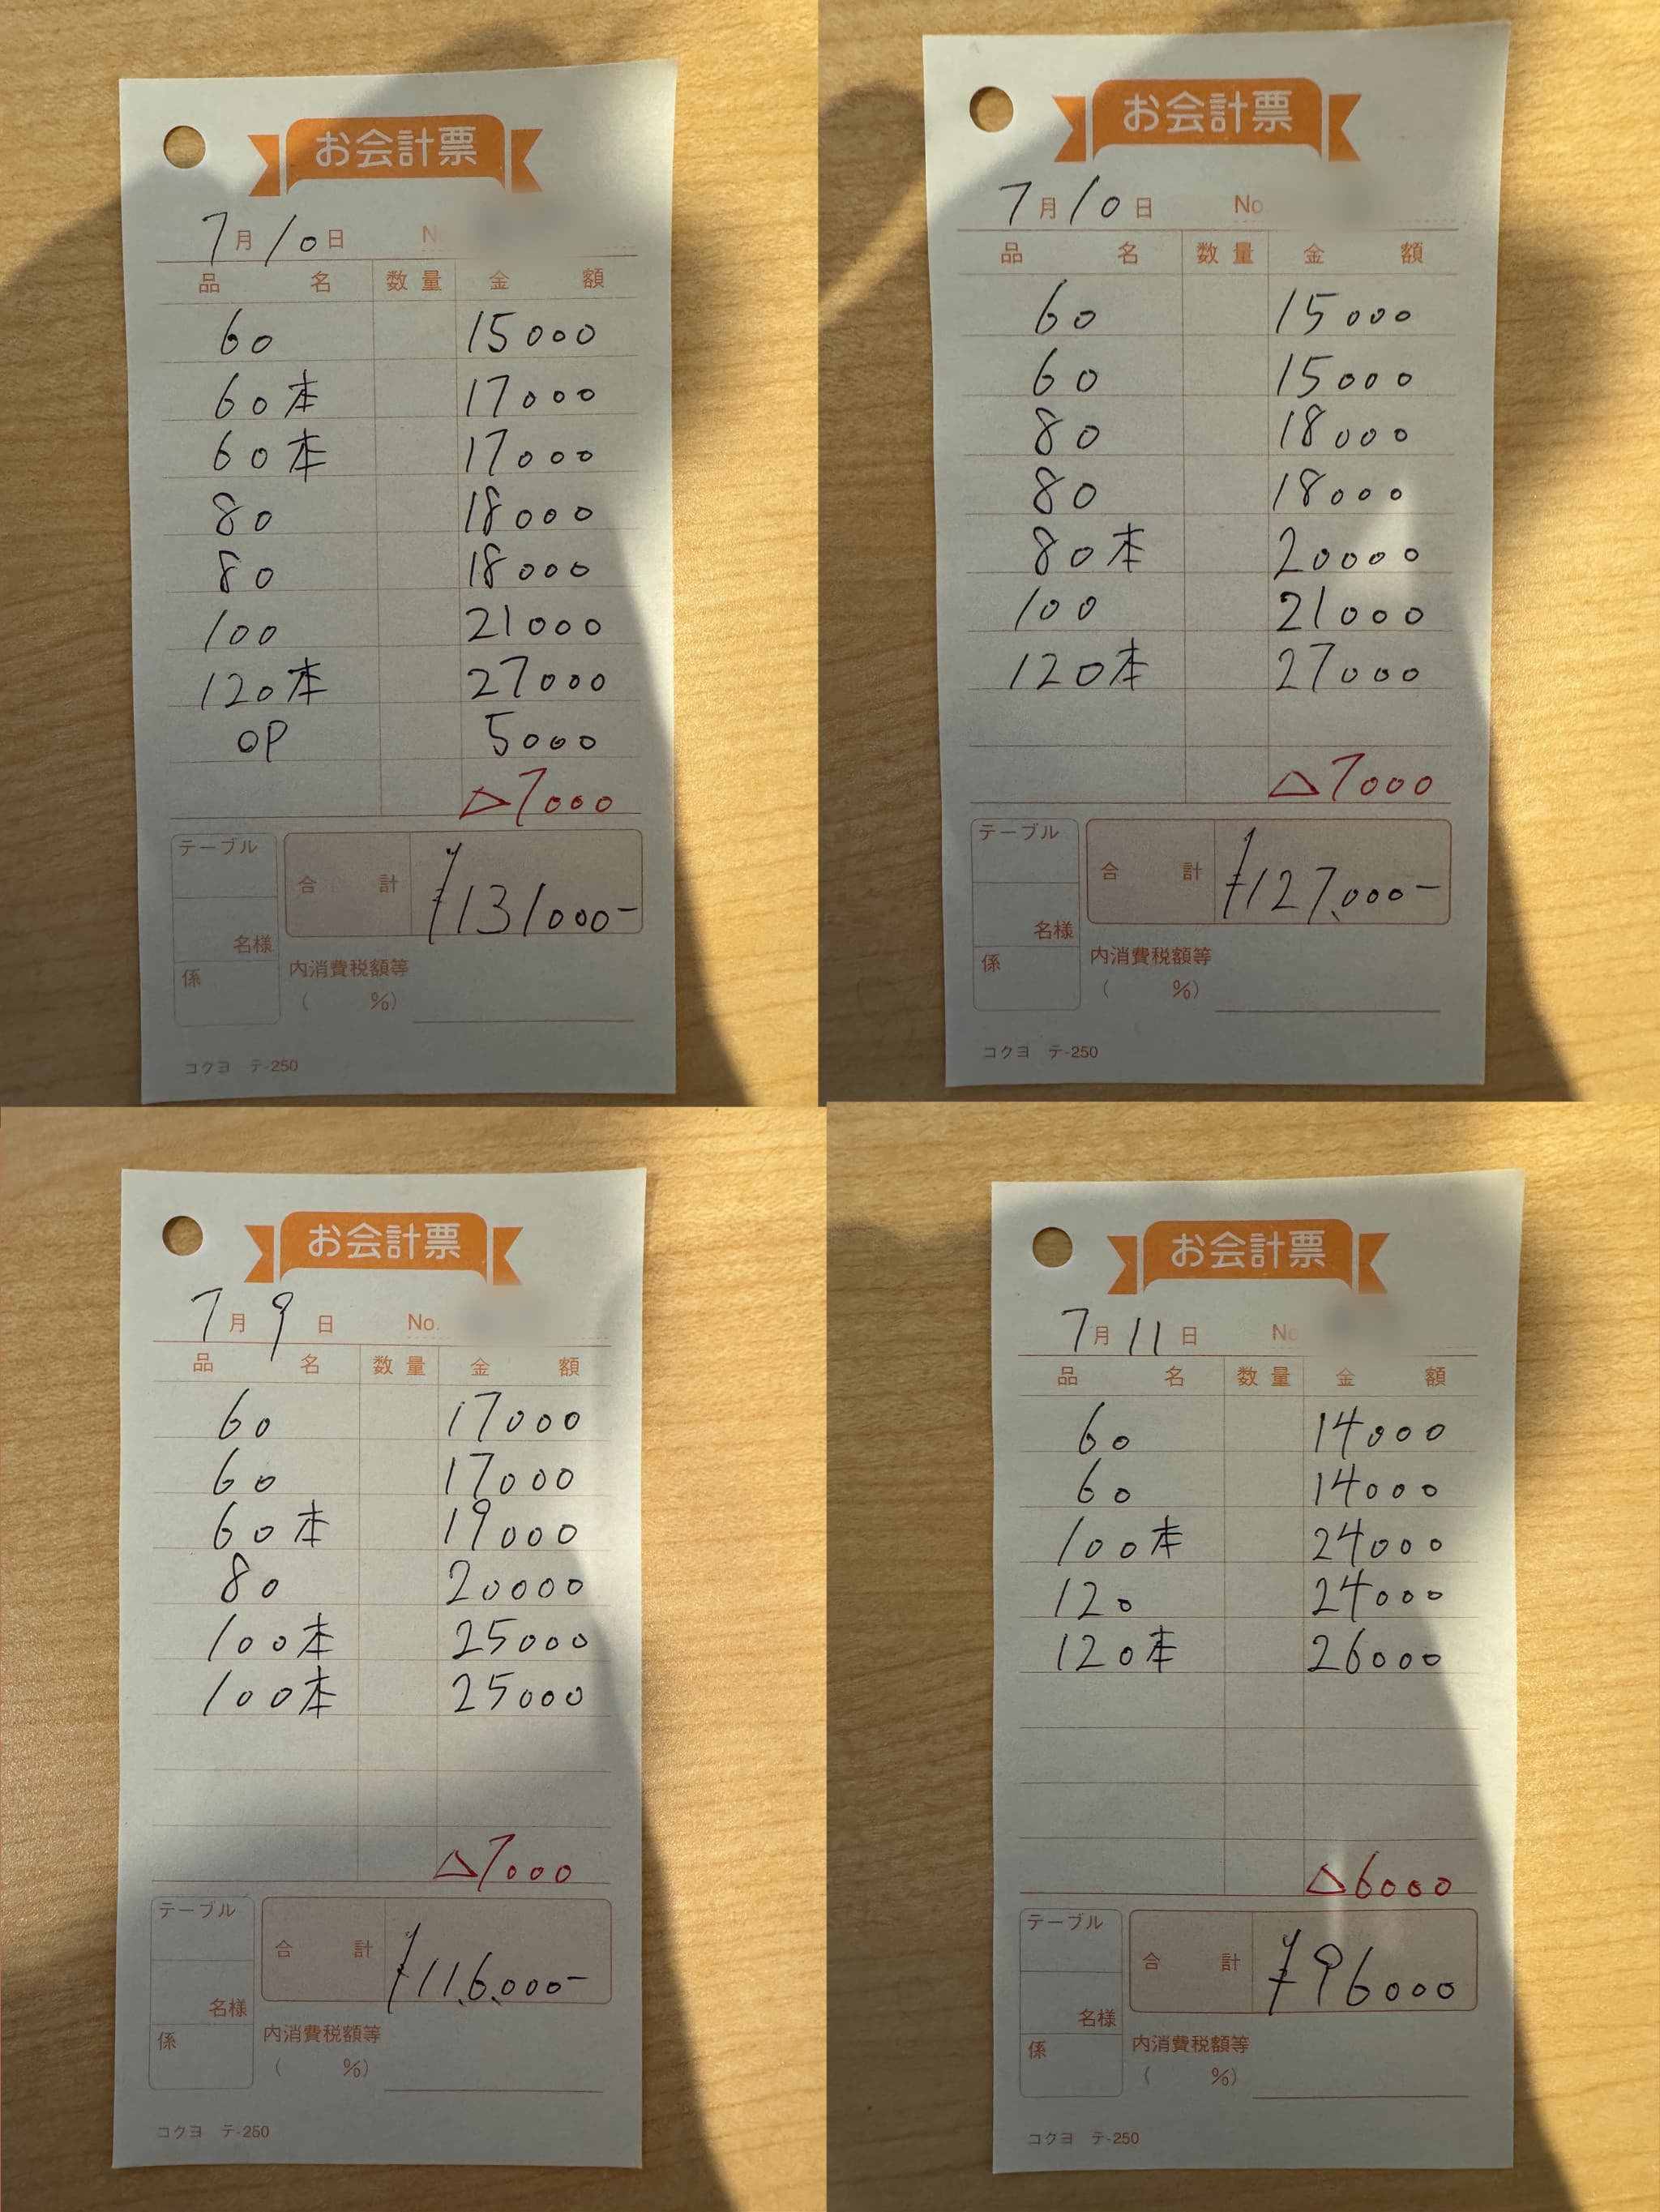 お会計票
7月10日 N
品名 数量 金額
60 15000
60本 17000
60本 17000
80 18000
80 18000
100 21000
120本 27000
OP 5000
△7000
テーブル
合計 ¥131000-
名様
係
内消費税額等
( %)
コクヨ テ-250
お会計票
7月10日 No
品名 数量 金額
60 15000
60 15000
80 18000
80 18000
80本 20000
100 21000
120本 27000
△7000
テーブル
合計 ¥127,000-
名様
係
内消費税額等
( %)
コクヨ テ-250
お会計票
7月9日 No.
品名 数量 金額
60 17000
60 17000
60本 19000
80 20000
100本 25000
100本 25000
△7000
テーブル
合計 ¥116,000-
名様
係
内消費税額等
( %)
コクヨ テ-250
お会計票
7月11日 No
品名 数量 金額
60 14000
60 14000
100本 24000
120 24000
120本 26000
△6000
テーブル
合計 ¥96000
名様
係
内消費税額等
( %)
コクヨ テ-250